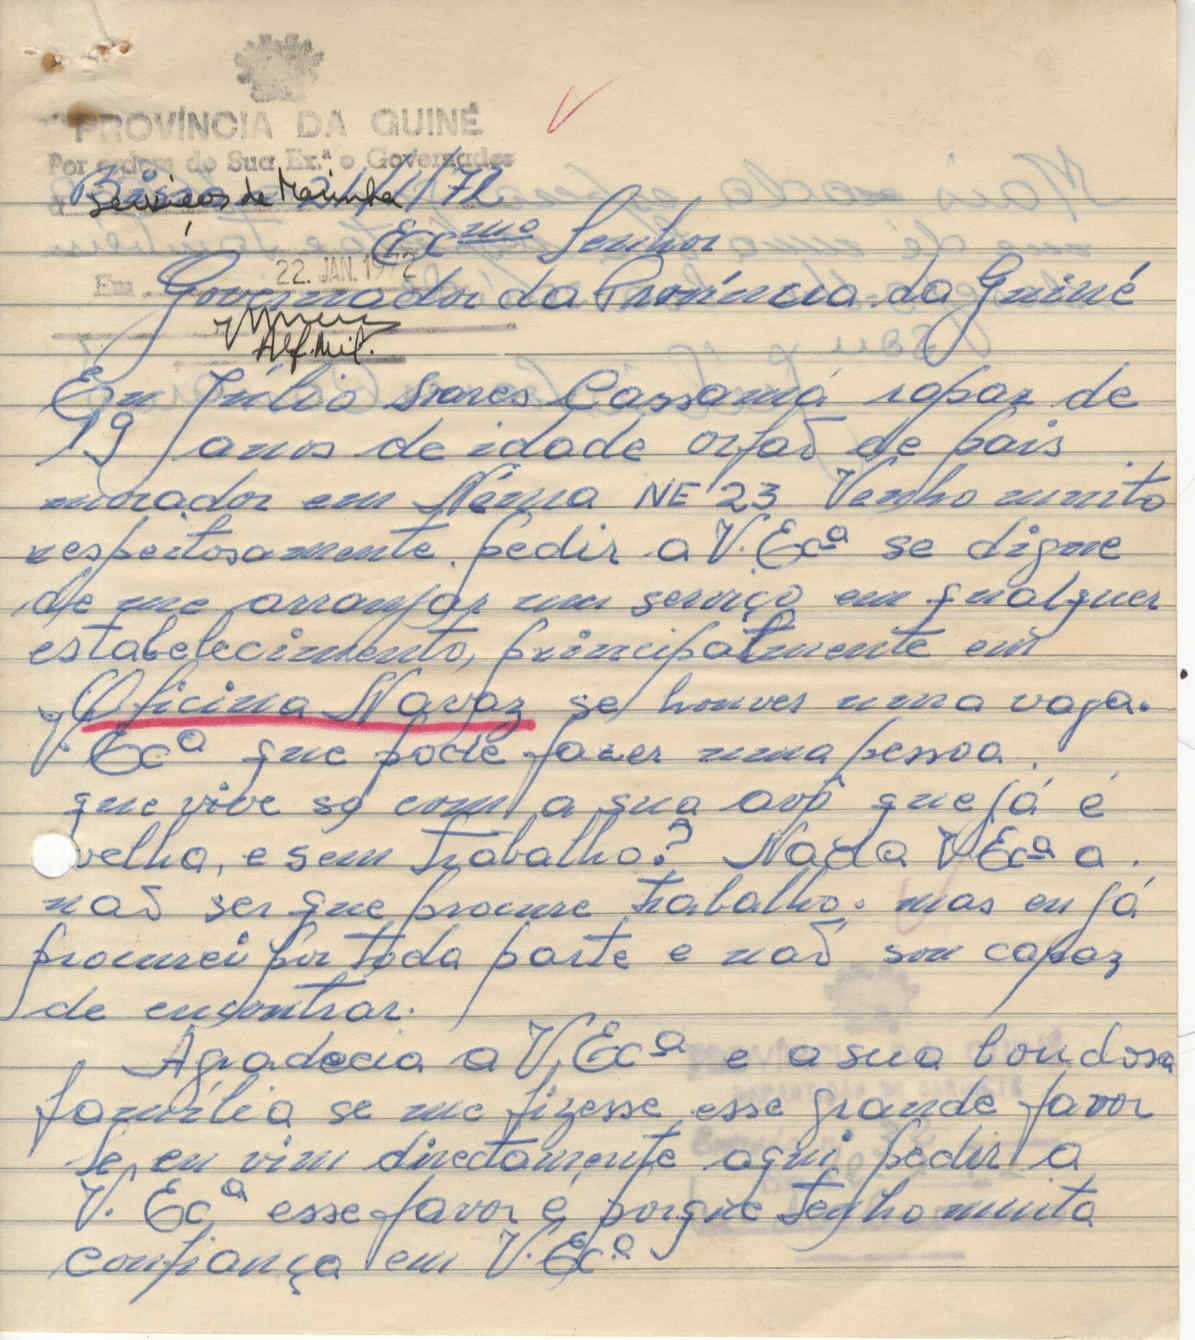 PROVÍNCIA DA GUINÉ
Por ordem de Sua Ex.ª o Governador
Bissau /1/72
Serviços de Marinha
Ex.mo Senhor
Em 22. JAN. 1972
Governador da Província da Guiné
Alf. Mil.
Eu Júlio Soares Cassamá rapaz de
19 anos de idade orfaõ de pais
morador em Néma NE 23 Venho muito
respeitosamente pedir a V. Ecª se digne
de me arranjar um serviço em qualquer
estabelecimento, principalmente em
Oficina Navaz se houver uma vaga.
V. Ecª que pode fazer uma pessoa
que vive so com a sua avô que já é
velha, e sem trabalho? Nada V Ecª a
naõ ser que procure trabalho. mas eu já
procurei por toda parte e naõ sou capaz
de encontrar.
Agradecia a V. Ecª e a sua bondosa
família se me fizesse esse grande favor
Se eu vim directamente aqui pedir a
V. Ecª esse favor é porque tenho muita
confiança em V. Ecª